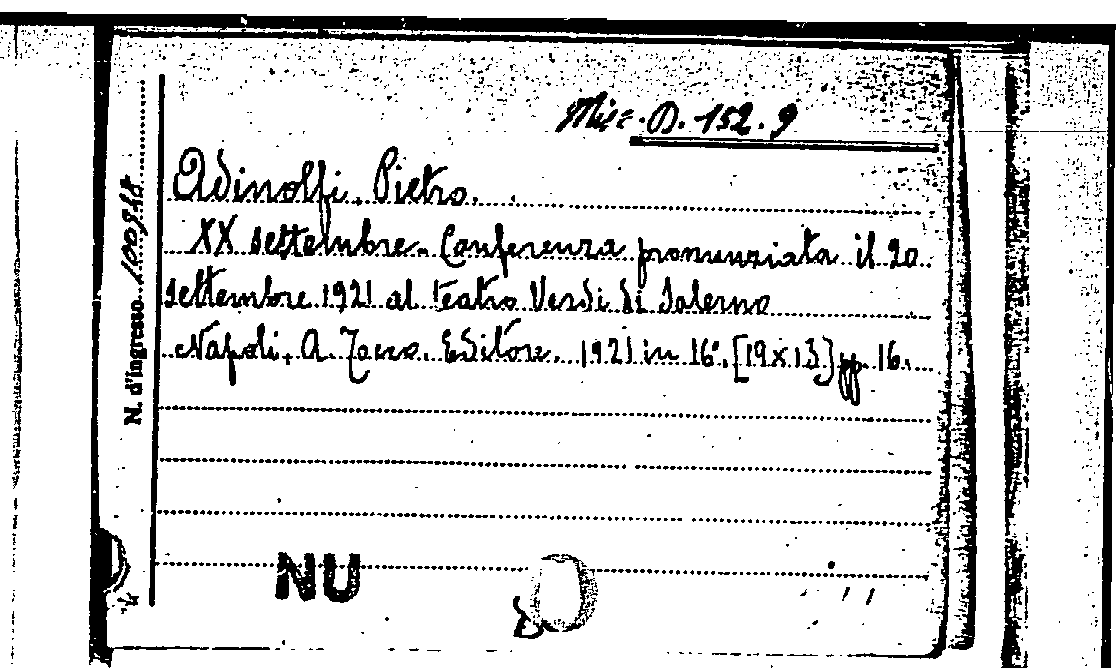 Misc. D. 152. 9
Adinolfi, Pietro.
XX settembre. Conferenza pronunziata il 20
settembre 1921 al teatro Verdi di Salerno
Napoli, A. Tocco. Editore. 1921 in 16°. [19x13] pp. 16.
N. d'Ingresso
NU